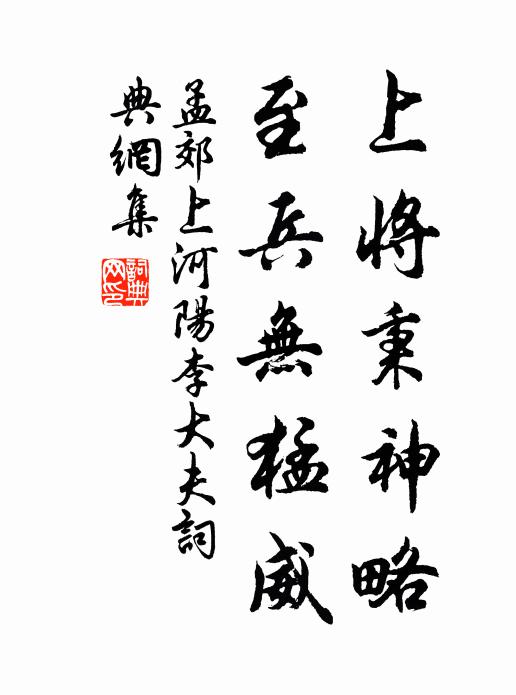 上将秉神略
至兵無猛威
孟郊上河陽李大夫詞
典網集
詞典
网印